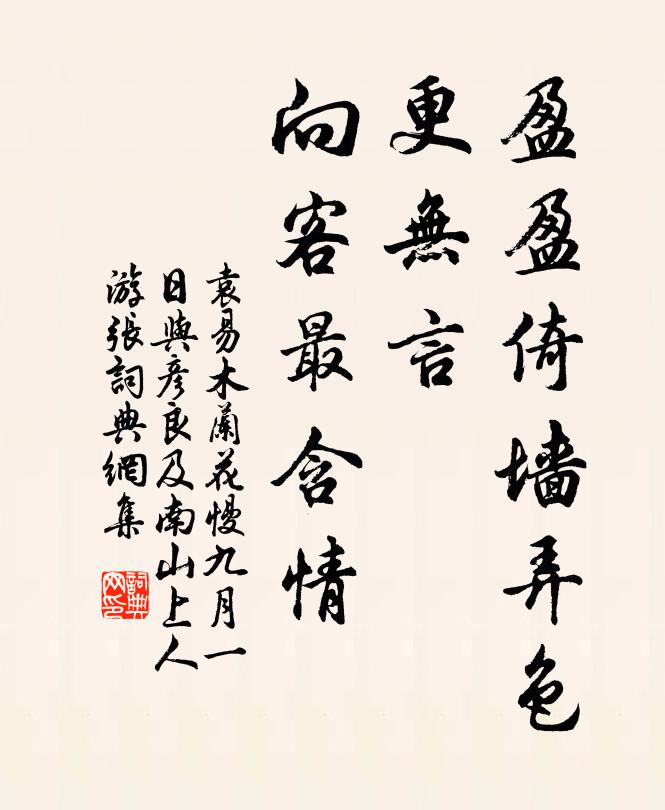 盈盈倚墙弄色
更無言
向客最含情
袁易木蘭花慢九月一
日與彦良及南山上人
游張詞典網集
詞典
网印